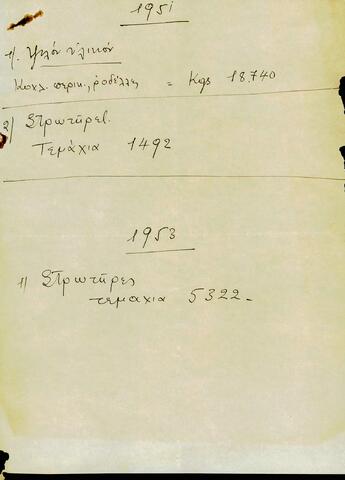 1951
1/. Ψιλόν ὑλικόν
περικ., ροδέλλες = Kgs 18.740
2) Στρωτῆρες.
Τεμάχια 1492
1953
1) Στρωτῆρες
τεμαχια 5322-